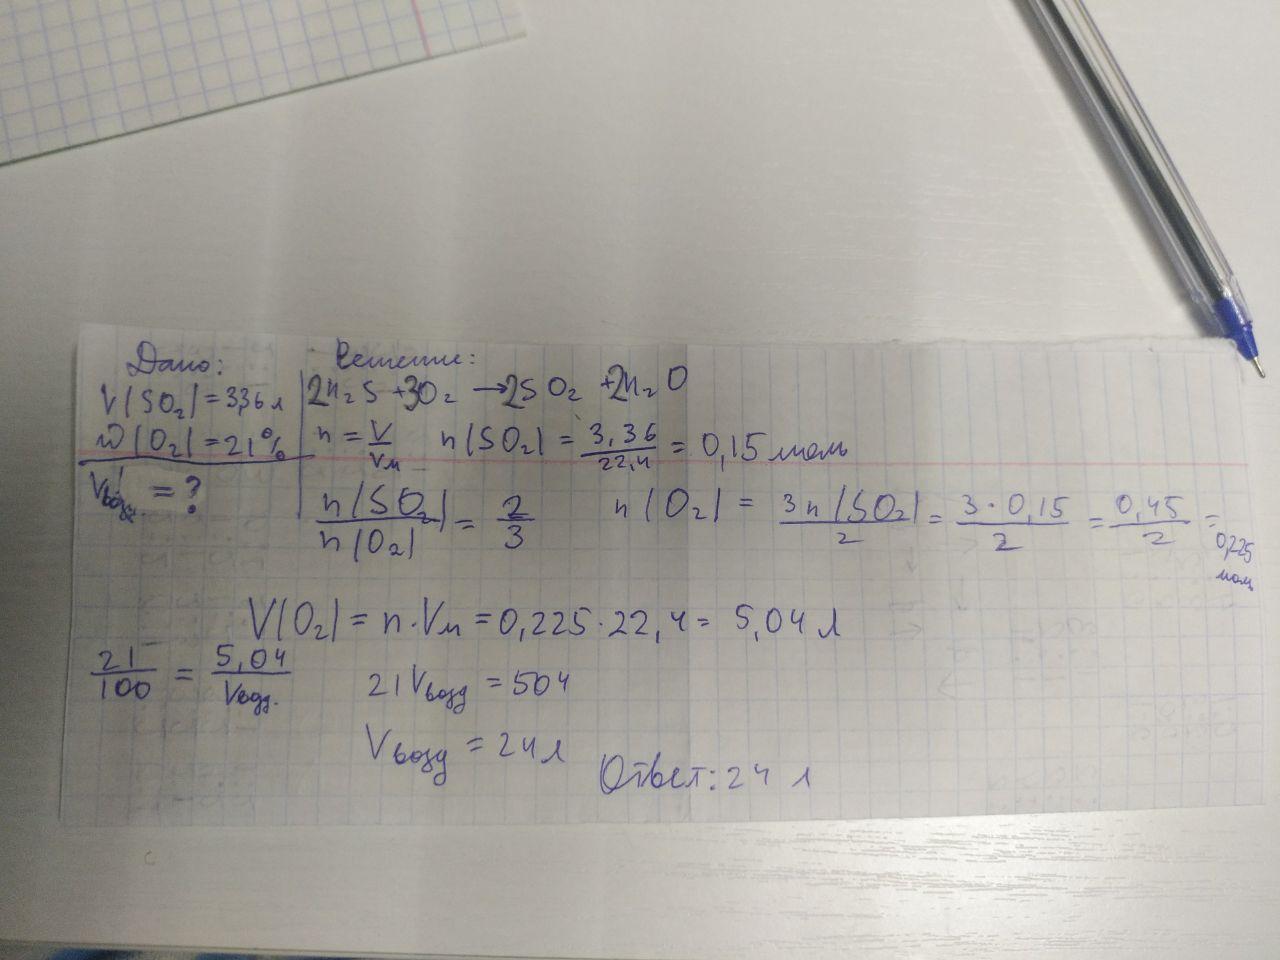 Дано:
V(SO₂) = 3,36 л
ω(O₂) = 21%
Vвозд. = ?
Решение:
2H₂S + 3O₂ → 2SO₂ + 2H₂O
n = V/Vм n(SO₂) = 3,36/22,4 = 0,15 моль
n(SO₂)/n(O₂) = 2/3 n(O₂) = 3n(SO₂)/2 = 3·0,15/2 = 0,45/2 = 0,225 моль
V(O₂) = n·Vм = 0,225·22,4 = 5,04 л
21/100 = 5,04/Vвозд. 21Vвозд = 504
Vвозд = 24 л
Ответ: 24 л